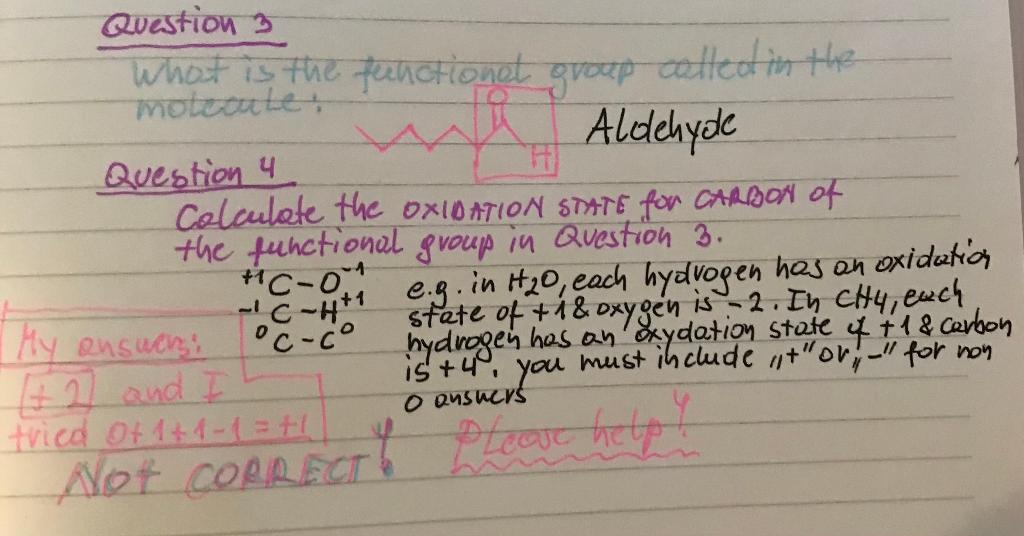 Question 3
What is the functional group called in the
molecule:
O
H
Aldehyde
Question 4
Calculate the OXIDATION STATE for CARBON of
the functional group in Question 3.
+1 C-O -1
-1 C-H +1
0 C-C 0
e.g. in H2O, each hydrogen has an oxidation
state of +1 & oxygen is -2. In CH4, each
hydrogen has an oxydation state of +1 & carbon
is +4. you must include „+" or „-" for non
0 answers
My answers:
+2 and I
tried 0+1+1-1=+1
NOT CORRECT!
Please help!